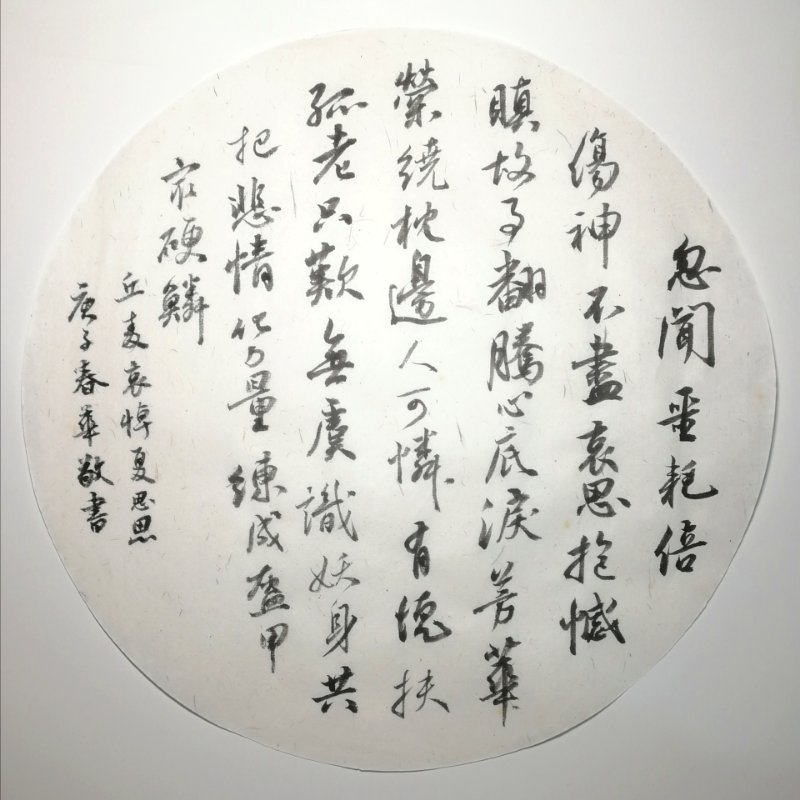 忽聞噩耗倍
傷神不盡哀思抱憾
瞋故多翻騰心底淚芳華
縈繞枕邊人可憐有愧扶
孤老只歎無虞識妖身共
把悲情化力量練成盔甲
衣硬鱗
丘麦哀悼夏思思
庚子春華敬書